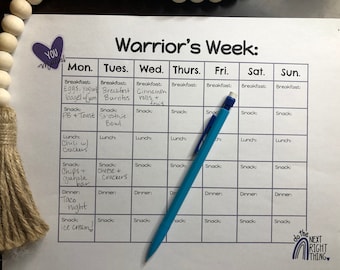 YOU
Warrior's Week:
Mon. Tues. Wed. Thurs. Fri. Sat. Sun.
Breakfast: Breakfast: Breakfast: Breakfast: Breakfast: Breakfast: Breakfast:
Eggs, Breakfast Cinnamon
Burritos rolls +
Snack: Snack: Snack: Snack: Snack: Snack: Snack:
PB + Toast Smoothie
Bowl
Lunch: Lunch: Lunch: Lunch: Lunch: Lunch: Lunch:
Chili w/
Crackers
Snack: Snack: Snack: Snack: Snack: Snack:
Chips + Cheese +
Crackers
bar
Dinner: Dinner: Dinner: Dinner: Dinner: Dinner: Dinner:
Taco
night
Snack: Snack: Snack: Snack: Snack: Snack: Snack:
Ice Cream!
the
NEXT
RIGHT
THING